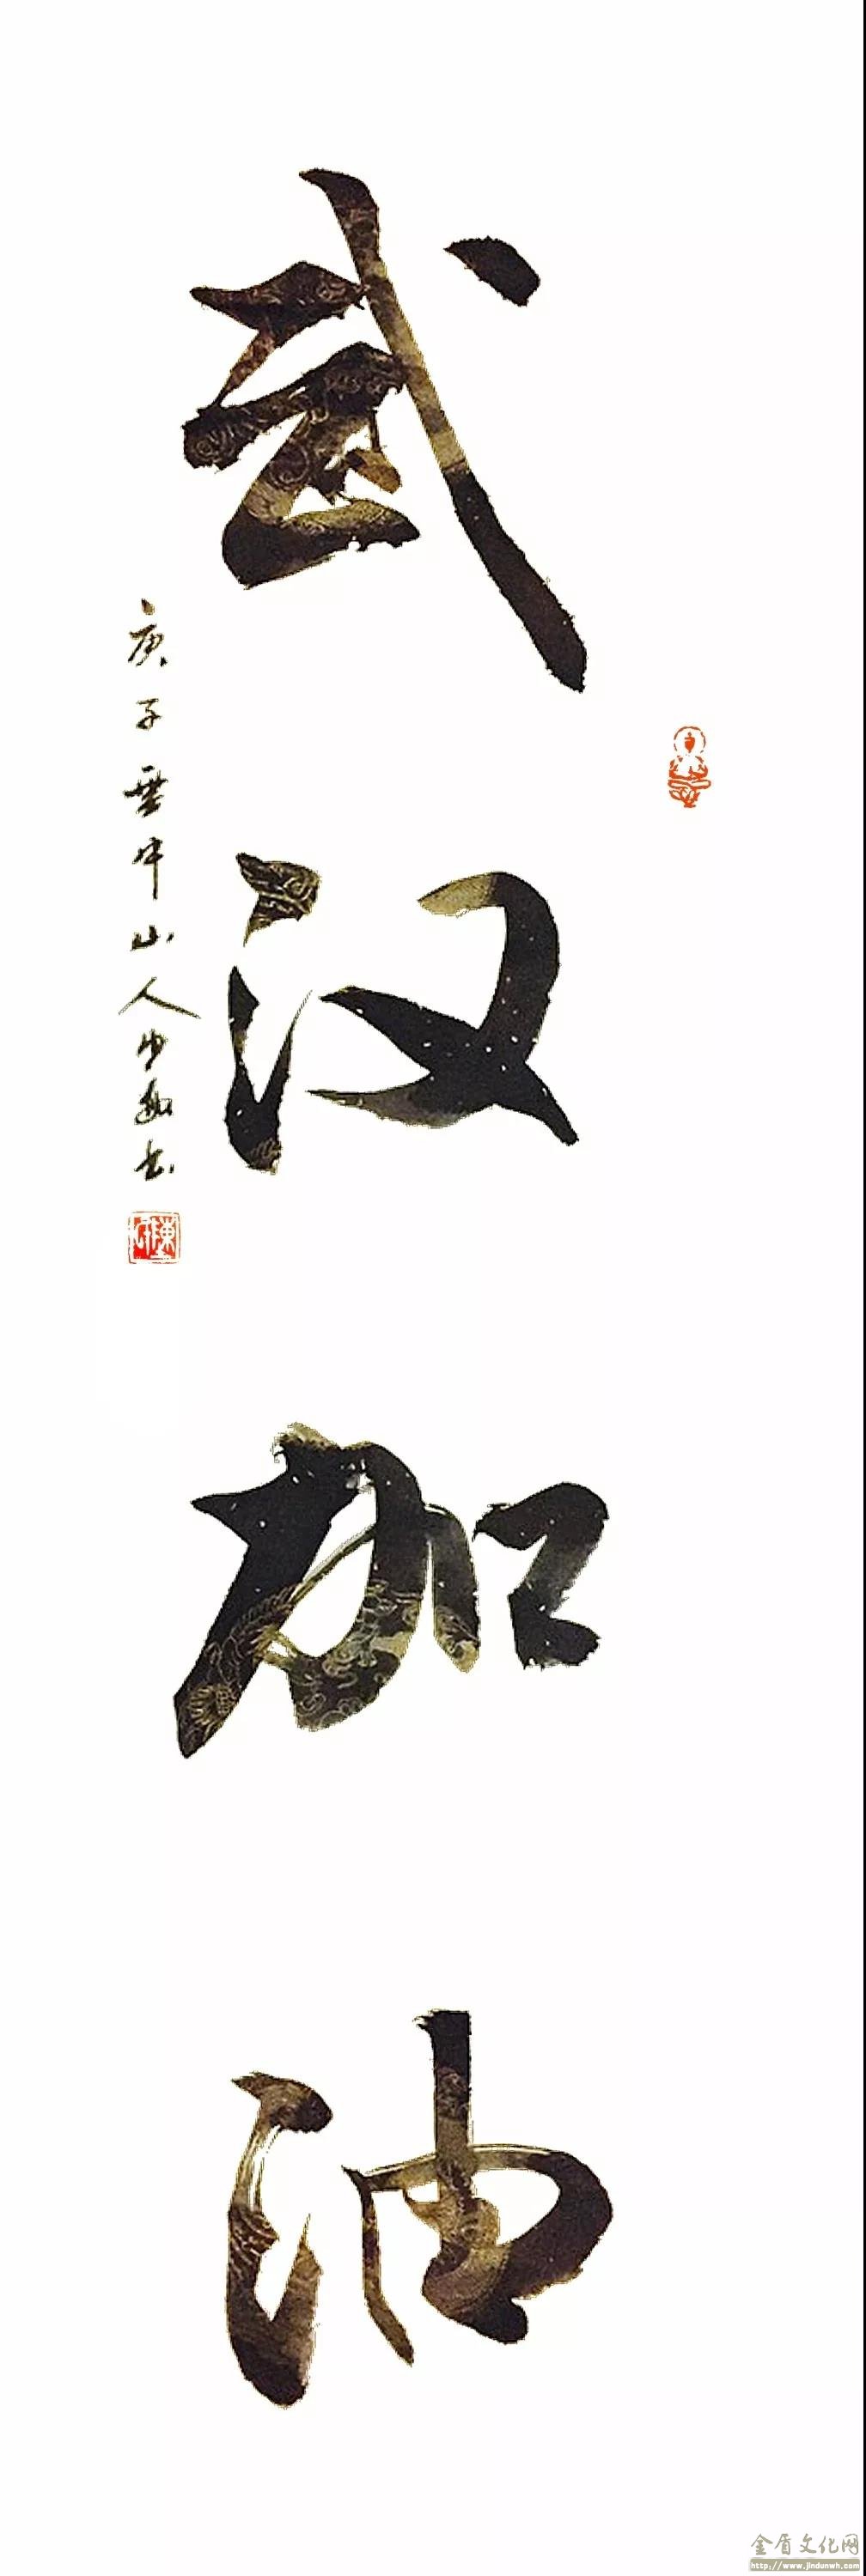 武汉加油
庚子 中山人 书
金盾文化网
http://www.jindunwh.com